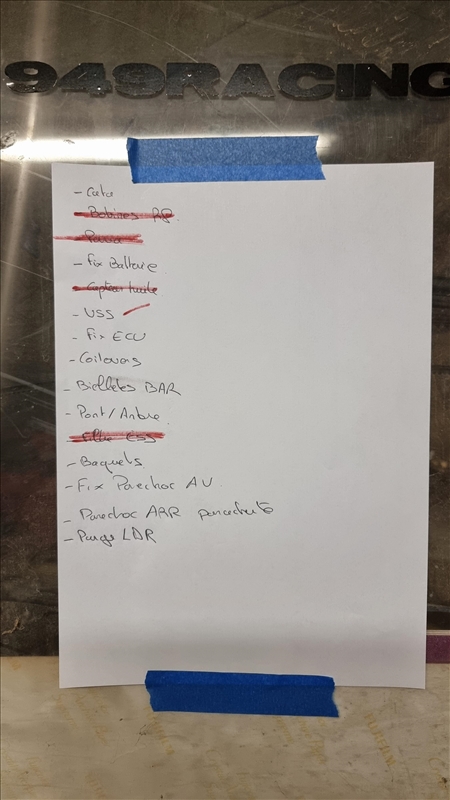 949RACING
- Cata
- Bobines RP.
- Fix Batterie
- Capteur huile
- VSS
- Fix ECU
- Coilovers
- Biellettes BAR
- Pont / Arbre
- Filtre ESS
- Baquets
- Fix Parechoc AV.
- Parechoc ARR parachute
- Purge LDR